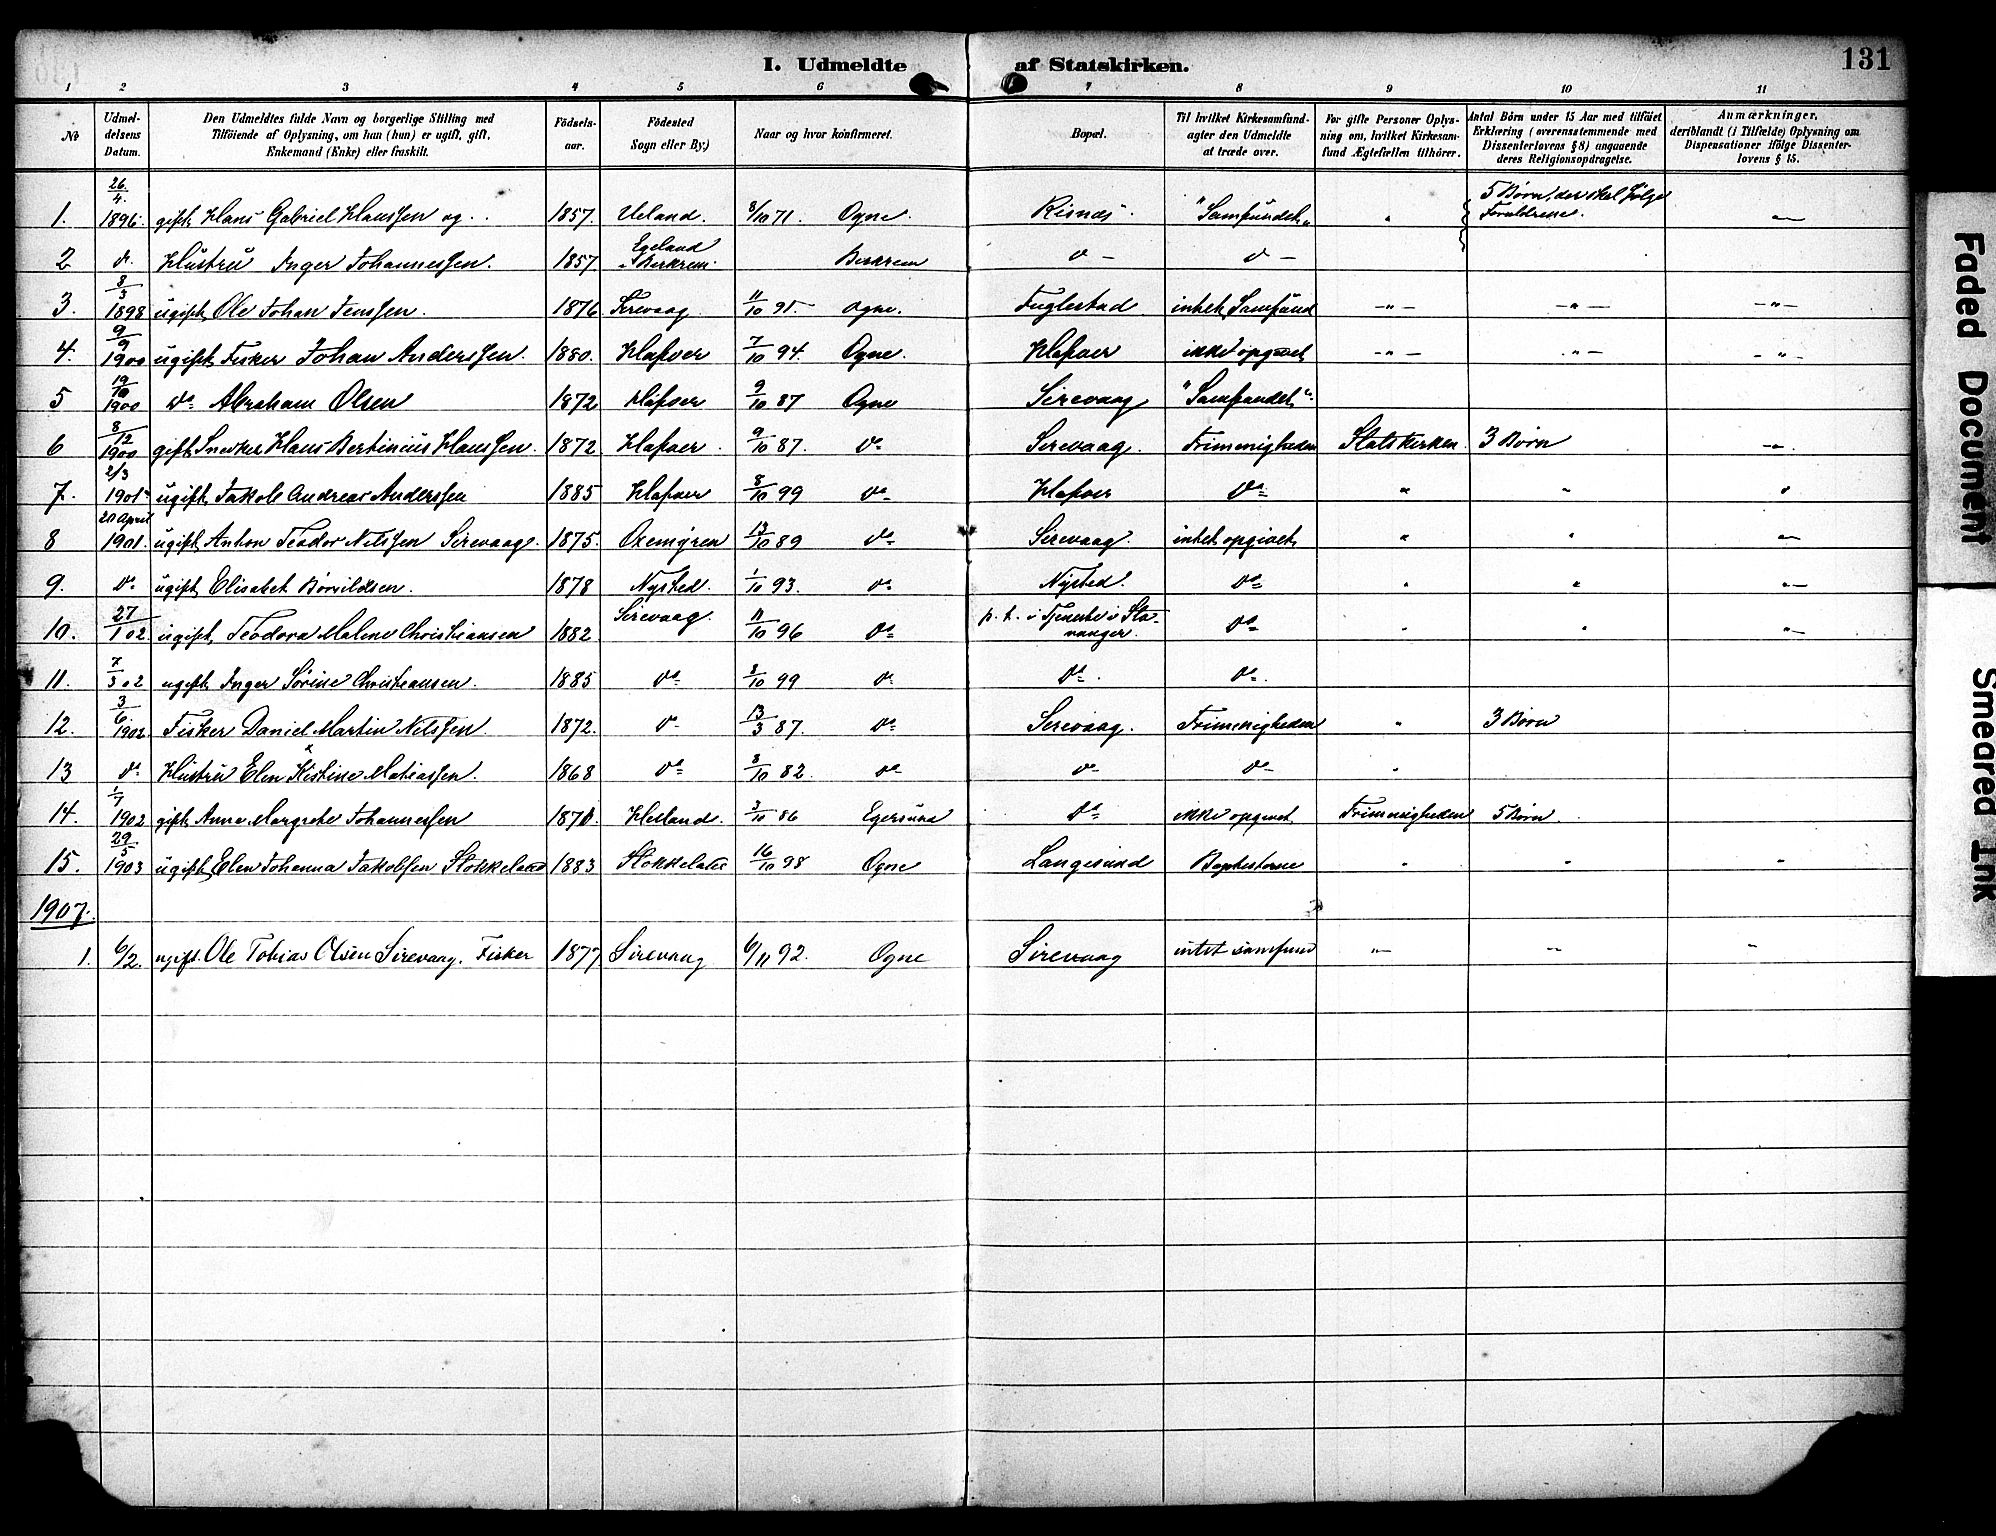 I. Udmeldte af Statskirken. 131
1 2 3 4 5 6 7 8 9 10 11
No
Udmel-
delsens
Datum.
Den Udmeldtes fulde Navn og borgerlige Stilling med
Tilföiende af Oplysning, om han (hun) er ugift, gift,
Enkemand (Enke) eller fraskilt.
Födsels-
aar.
Födested
Sogn eller By.)
Naar og hvor konfirmeret.
Bopæl.
Til hvilket Kirkesamfund-
agter den Udmeldte
at træde over.
For gifte Personer Oplys-
ning om, hvilket Kirkesam-
fund Ægtefællen tilhörer.
Antal Börn under 15 Aar med tilföiet
Erklæring (overensstemmende med
Dissenterlovens § 8) angaaende
deres Religionsopdragelse.
Anmærkninger,
deriblandt (i Tilfælde) Oplysning om
Dispensationer ifölge Dissenter-
lovens § 15.
1. 26/4 1896. gift Hans Gabriel Hanssen og 1857. Ueland. 8/10 71. Ogne. Risnæs. "Samfundet" " 5 Børn, der skal følge Forældrene. "
2 do. Hustru Inger Johannessen. 1857 Egeland Berkrem. Berkrem do - do -
3. 8/3 1898 ugift Ole Johan Jenssen. 1876 Sirevaag 11/10 91. Ogne. Fuglestad intet Samfund -"- -"- -"-
4. 9/9 1900 ugift Fisker Johan Anderssen. 1880. Hafsøer 7/10 94. Ogne. Hafsøer ikke opgivet -"- -"- -"-
5 19/10 1900 do Abraham Olsen 1872 Hafsøer 9/10 87 Ogne Sirevaag "Samfundet".
6 8/12 1900 gift Snedker Hans Bertinius Hanssen. 1872 Hafsøer. 9/10 87. do Sirevaag. Frimenigheden Statskirken. 3 Børn "
7. 2/3 1901. ugift Jakob Andreas Anderssen 1885 Hafsøer 8/10 99 do Hafsøer do " " "
8 20 April 1901. ugift Anton Teodor Nilssen Sirevaag. 1875. Oxemyren 13/10 89 do Sirevaag. intet opgivet " " "
9. do. ugift Elisabet Børildsen. 1878 Nysted. 1/10 93. do Nysted. do " " "
10. 27/1 02. ugift Teodora Malene Christiansen 1882 Sirevaag. 11/10 96 do p. t. i Tjeneste i Sta-
vanger. do " " "
11. 7/3 02 ugift Inger Sørine Christiansen. 1885 do 8/10 99 do do. do.
12. 3/6 1902. Fisker Daniel Martin Nilssen. 1872. do 13/3 87. do Sirevaag. Frimenigheden " 3 Børn
13 do. Hustru Elen Kistine Matiassen. 1868 do 8/10 82. do do do "
14. 1/7 1902 gift Anna Margrete Johannessen 1870. Helland. 3/10 86 Egersund do ikke opgivet Frimenigheden 5 Børn.
15. 29/5 1903 ugift Elen Johanna Jakobsen Stokkeland 1883 Stokkeland 16/10 98 Ogne Langesund Baptisterne " " "
1907.
1. 6/2. ugift. Ole Tobias Olsen Sirevaag. Fisker 1877 Sirevaag 6/11 92. Ogne Sirevaag intet samfund -"- -"- "
Faded Document
Smeared Ink